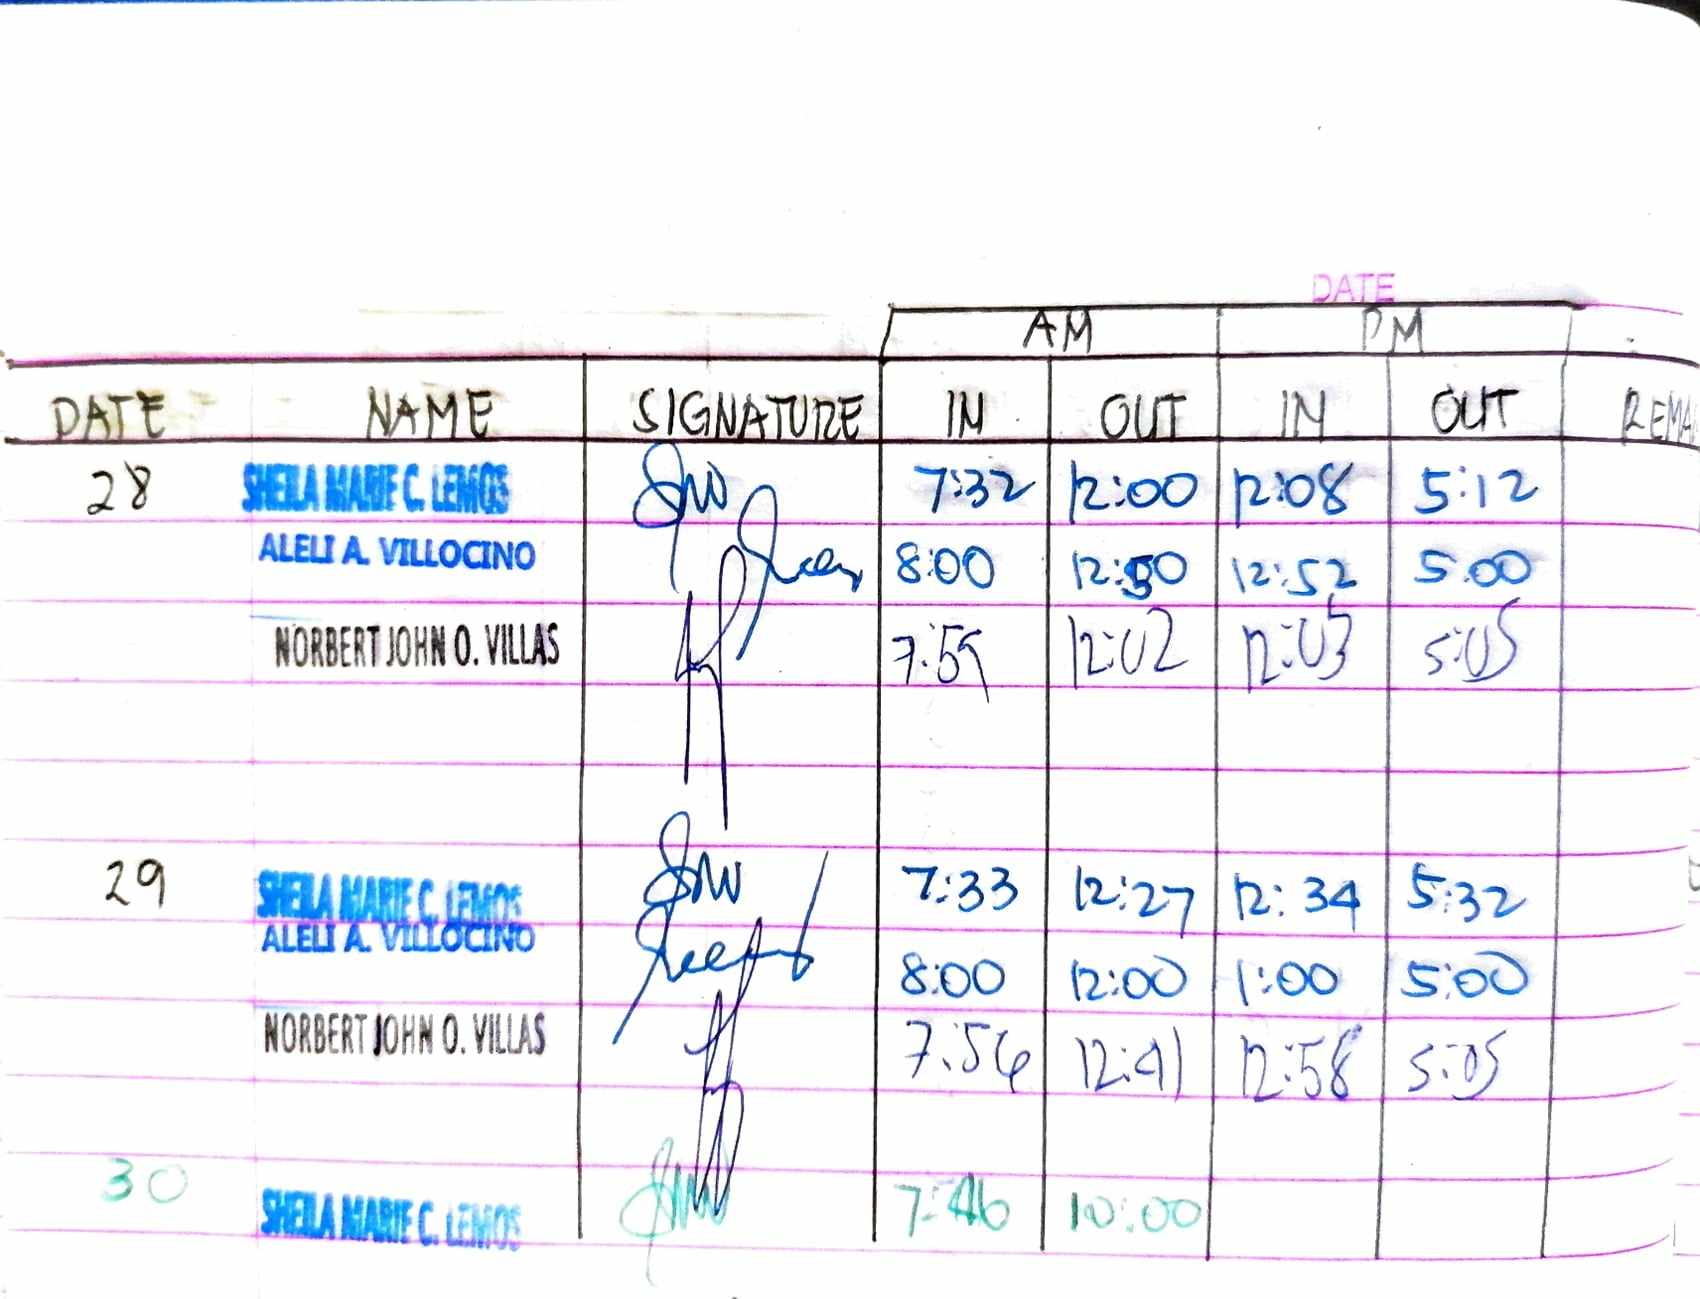 DATE
AM PM
DATE NAME SIGNATURE IN OUT IN OUT REMA
28 SHEILA MARIE C. LEMOS 7:32 12:00 12:08 5:12
ALELI A. VILLOCINO 8:00 12:50 12:52 5:00
NORBERT JOHN O. VILLAS 7:59 12:02 12:03 5:05
29 SHEILA MARIE C. LEMOS 7:33 12:27 12:34 5:32
ALELI A. VILLOCINO 8:00 12:00 1:00 5:00
NORBERT JOHN O. VILLAS 7:56 12:41 12:58 5:05
30 SHEILA MARIE C. LEMOS 7:46 10:00